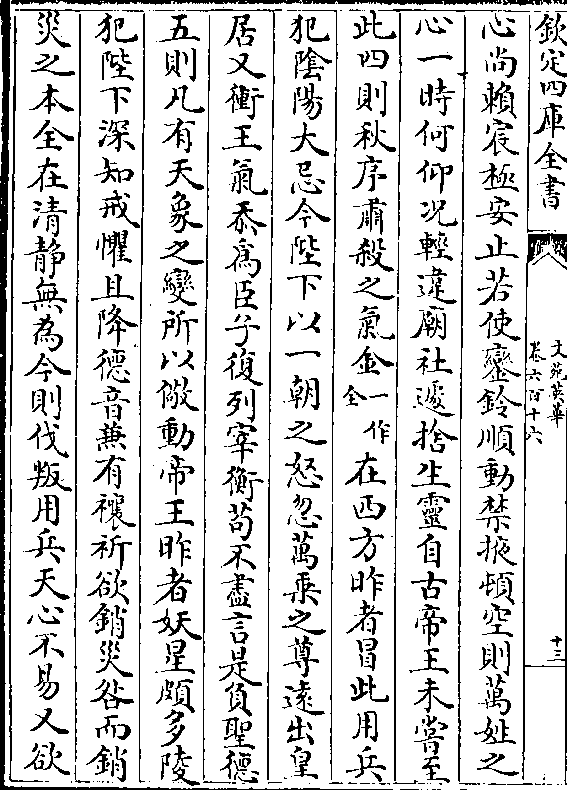 欽定四庫全書
文苑英華
卷六百十六
十三
心尚賴宸極安止若使鑾鈴順動禁掖頓空則萬姓之
心一時何仰况輕違廟社遽捨生靈自古帝王未嘗至
此四則秋序肅殺之氣金一作全在西方昨者冒此用兵
犯陰陽大忌今陛下以一朝之怒忽萬乘之尊遠出皇
居又衝王氣忝為臣子復列宰衡苟不盡言是負聖德
五則凡有天象之變所以儆動帝王昨者妖星頗多陵
犯陛下深知戒懼且降德音兼有禳祈欲銷災咎而銷
災之本全在清静無為今則伐叛用兵天心不易又欲